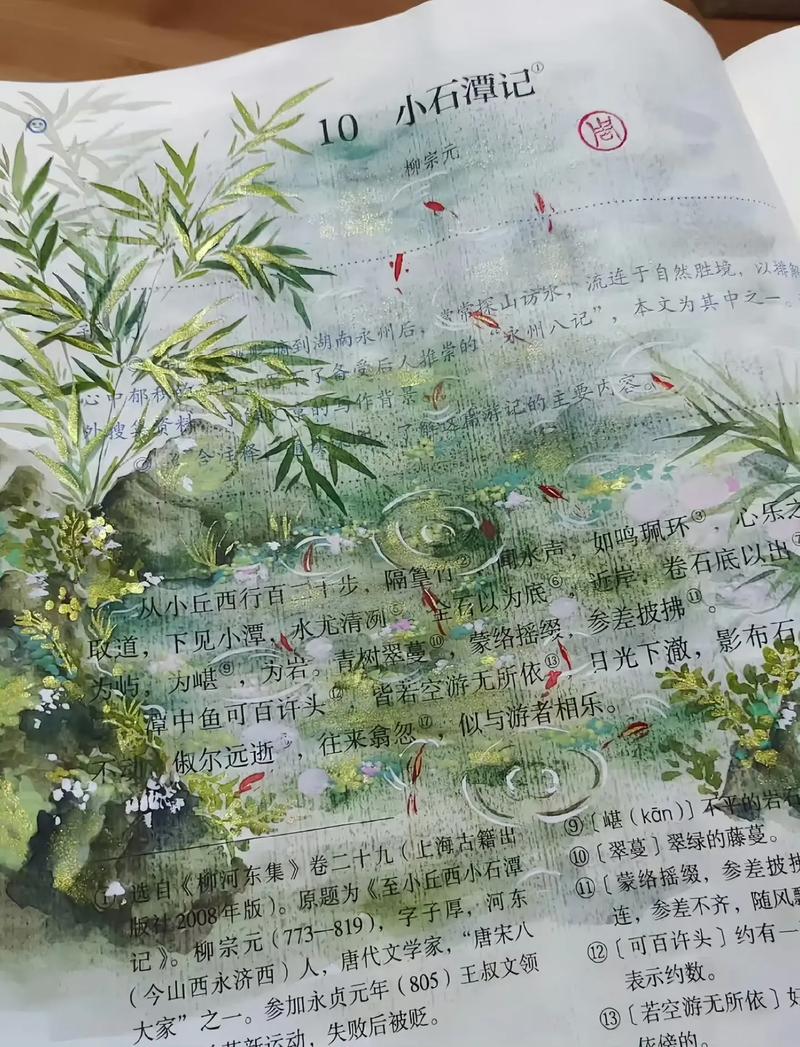 10 小石潭记①
柳宗元
到湖南永州后，常常探山访水，流连于自然胜境，以排解
心中郁 了备受后人推崇的“永州八记”，本文为其中之一。
外搜集资料，了解 的写作背景
含注释， 了解这篇游记的主要内容。
从小丘西行百二十步，隔篁竹②，闻水声，如鸣珮环③，心乐之
取道，下见小潭，水尤清冽 全石以为底⑥，近岸，卷石底以出⑦
为屿，为嵁⑨，为岩。青树翠蔓⑩，蒙络摇缀，参差披拂⑪。
潭中鱼可百许头⑫，皆若空游无所依⑬，日光下澈，影布石
不动 俶尔远逝 ，往来翕忽⑰，似与游者相乐。
①选自《柳河东集》卷二十九（上海古籍出
版社2008年版）。原题为《至小丘西小石潭
记》。柳宗元（773—819），字子厚，河东
（今山西永济西）人，唐代文学家，“唐宋八
大家”之一。参加永贞元年（805）王叔文领
革新运动，失败后被贬。
⑨〔嵁（kān）〕不平的岩石
⑩〔翠蔓〕翠绿的藤蔓。
⑪〔蒙络摇缀，参差披拂
连，参差不齐，随风飘
⑫〔可百许头〕约有一
表示约数。
⑬〔若空游无所依〕好
依傍的。